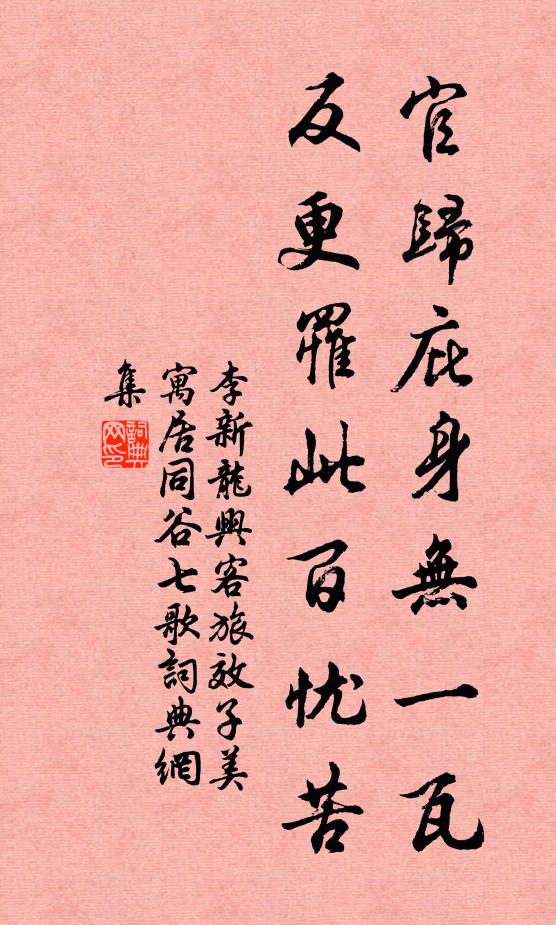 官歸庇身無一瓦
反更罹此百忧苦
李新龍興客旅效子美
寓居同谷七歌詞典網
集
詞典
网印